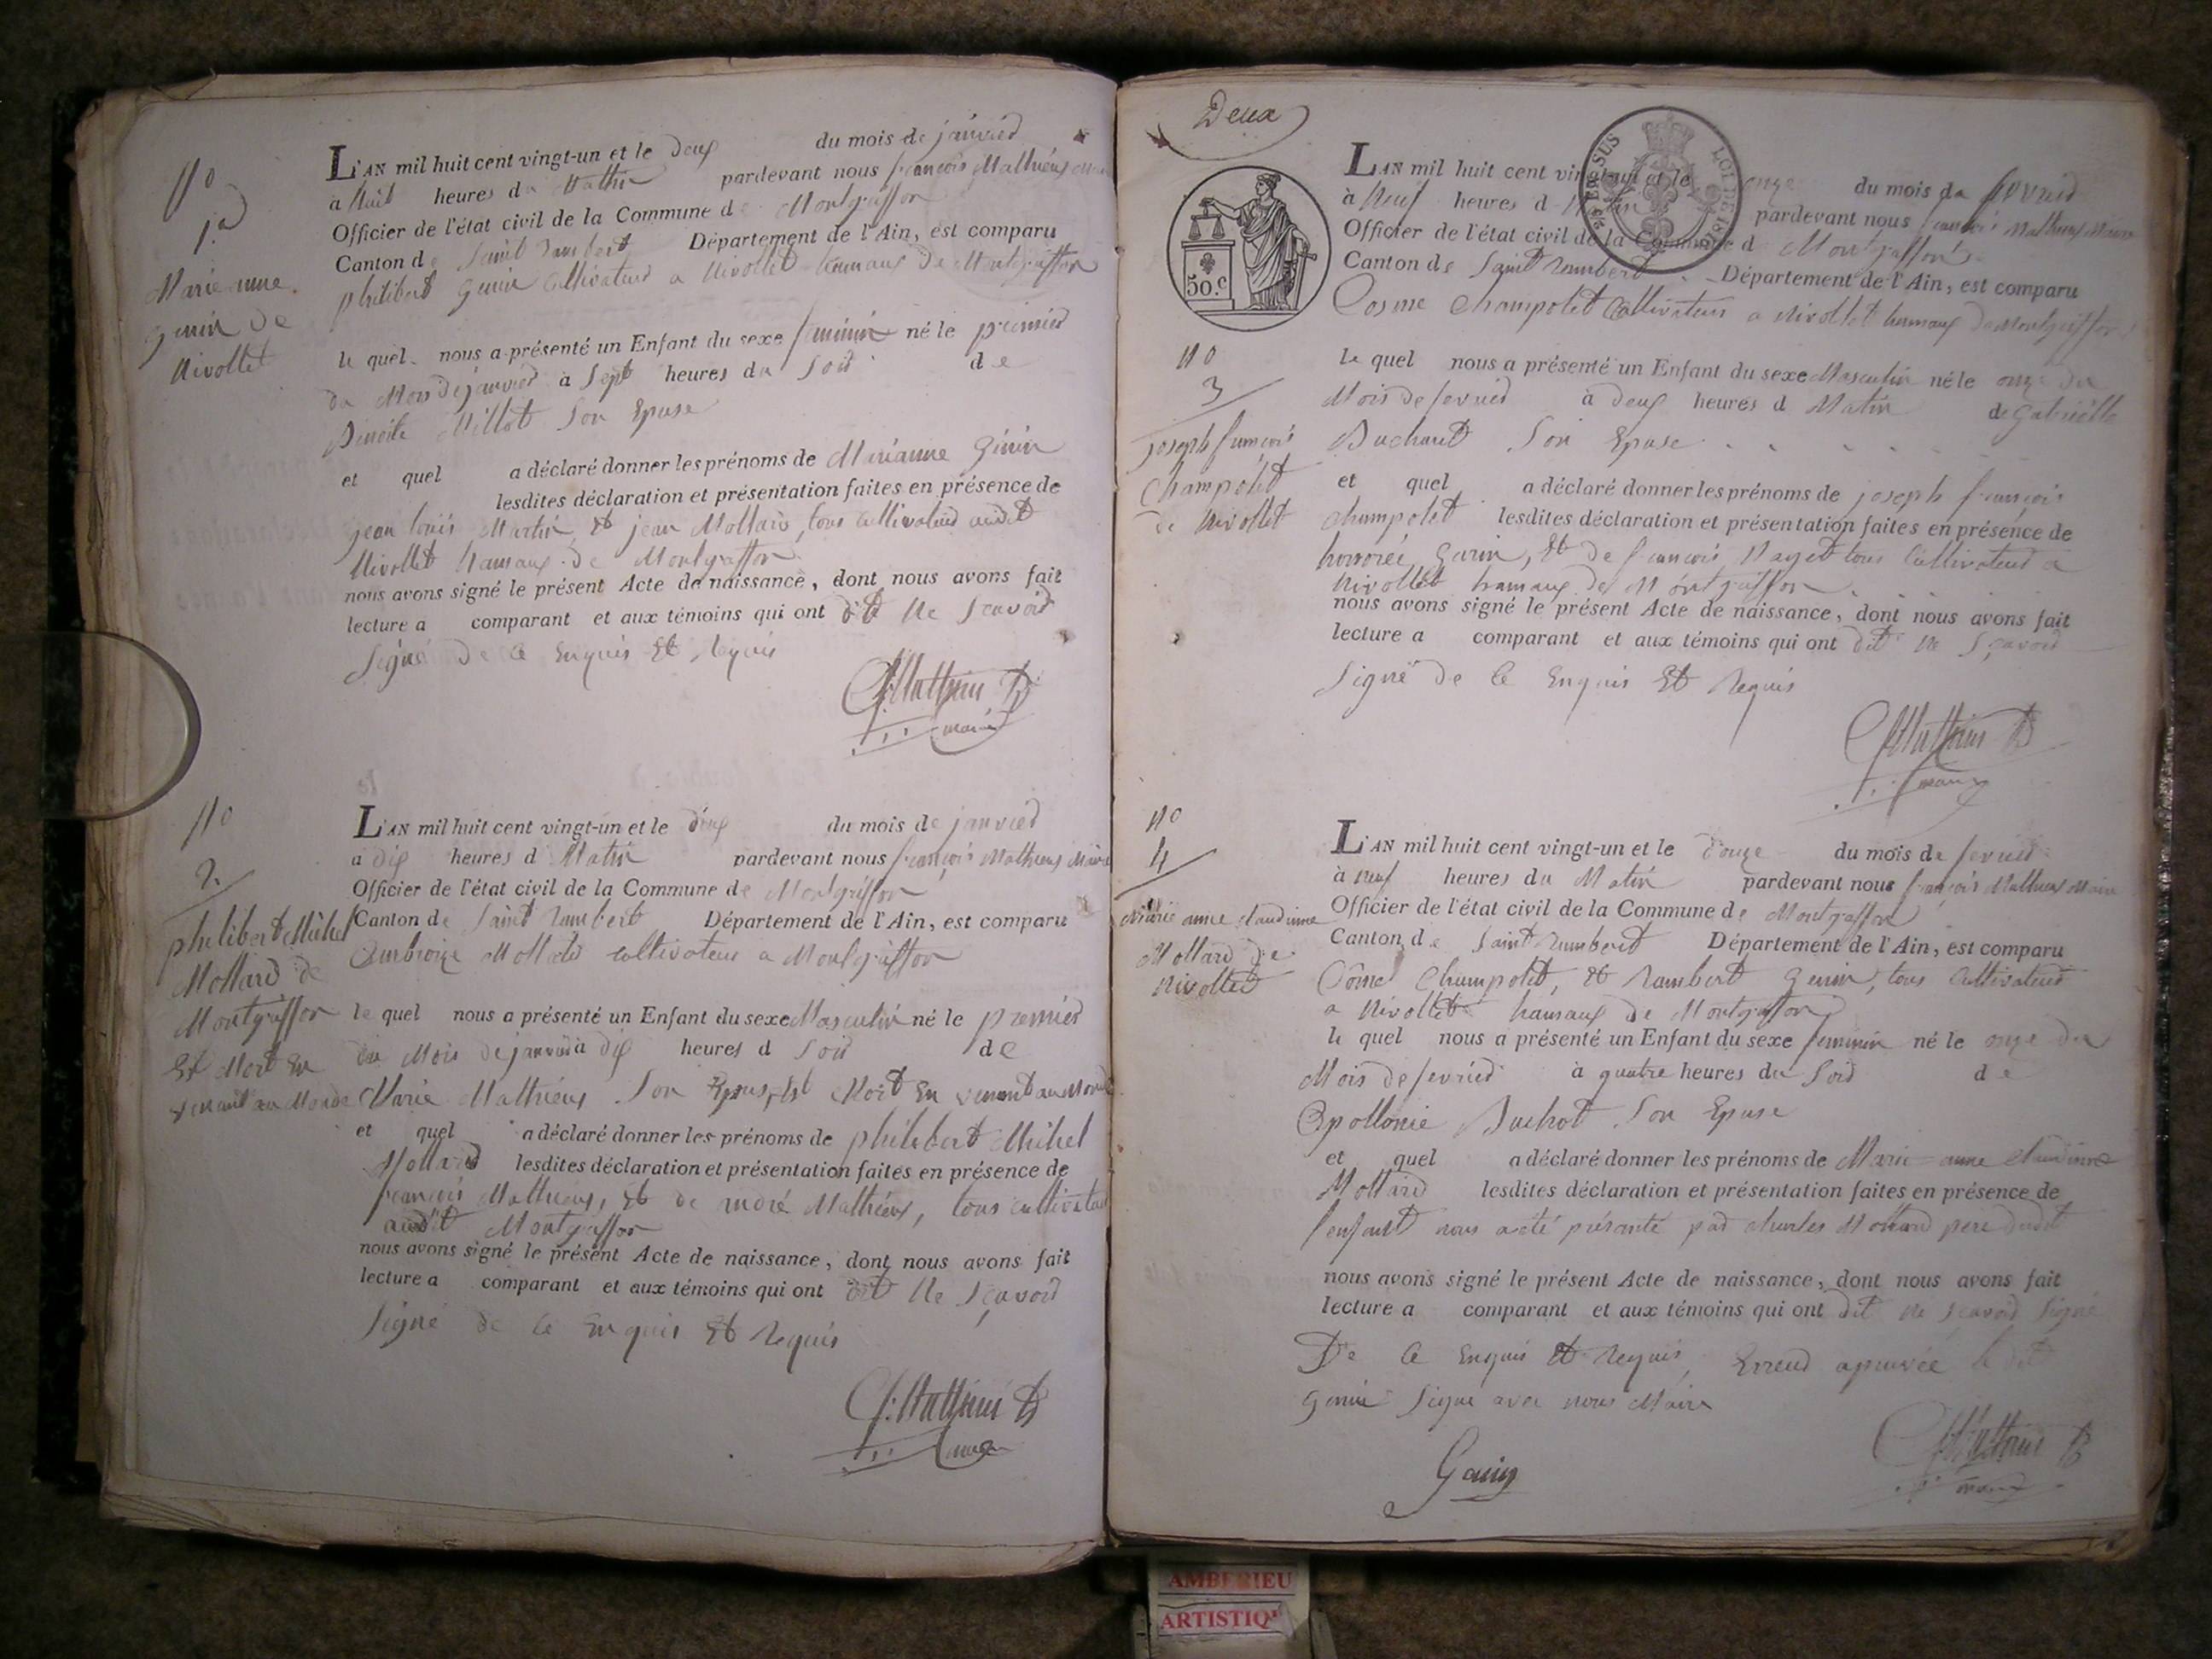 No
1.
Marie anne
genin de
Nivollet
L'AN mil huit cent vingt-un et le deux du mois de janvier
à huit heures du Matin pardevant nous françois Mathieux
Officier de l'état civil de la Commune de Montgriffon
Canton de Saint Rambert Département de l'Ain, est comparu
philibert genin Cultivateur a Nivollet hamaux de Montgriffon
le quel nous a présenté un Enfant du sexe feminin né le premier
du Mois de janvier à Sept heures du Soir de
Millot Son Epuse
et quel a déclaré donner les prénoms de Marianne Genin
lesdites déclaration et présentation faites en présence de
jean louis Martin, Et jean Mollard, tous Cultivateurs audit
Nivollet hamaux de Montgriffon
nous avons signé le présent Acte de naissance, dont nous avons fait
lecture a comparant et aux témoins qui ont dit Ne Sçavoir
Signé de Ce Enquis Et Requis
Mathieux
maire
No
2.
philibert Michel
Mollard de
Montgriffon
Et Mort En
venant au Monde
L'AN mil huit cent vingt-un et le deux du mois de janvier
a dix heures d Matin pardevant nous françois Mathieux Maire
Officier de l'état civil de la Commune de Montgriffon
Canton de Saint Rambert Département de l'Ain, est comparu
Ambroize Mollard Cultivateur a Montgriffon
le quel nous a présenté un Enfant du sexe Masculin né le premier
du Mois de janvier à dix heures d Soir de
Marie Mathieux Son Epuse, Est Mort En venant au Monde
et quel a déclaré donner les prénoms de philibert Michel
Mollard lesdites déclaration et présentation faites en présence de
françois Mathieux, Et de André Mathieux, tous cultivateurs
audit Montgriffon
nous avons signé le présent Acte de naissance, dont nous avons fait
lecture a comparant et aux témoins qui ont dit Ne Sçavoir
Signé de Ce Enquis Et Requis
Mathieux
maire
Deux
50.c
EN SUS
LOI DE
No
3
joseph françois
Champolet
de Nivollet
L'AN mil huit cent vingt-un et le onze du mois de fevrier
à Neuf heures d Matin pardevant nous françois Mathieux Maire
Officier de l'état civil de la Commune de Montgriffon
Canton de Saint Rambert Département de l'Ain, est comparu
Cosme Champolet Cultivateur a Nivollet hamaux de Montgriffon
le quel nous a présenté un Enfant du sexe Masculin né le onze du
Mois de fevrier à deux heures d Matin de Gabrielle
Son Epuse
et quel a déclaré donner les prénoms de joseph françois
Champolet lesdites déclaration et présentation faites en présence de
honnoré, Et de françois tous Cultivateurs a
Nivollet hamaux de Montgriffon
nous avons signé le présent Acte de naissance, dont nous avons fait
lecture a comparant et aux témoins qui ont dit Ne Sçavoir
Signé de Ce Enquis Et Requis
Mathieux
maire
No
4
Marie anne Claudinne
Mollard de
Nivollet
L'AN mil huit cent vingt-un et le douze du mois de fevrier
à neuf heures du Matin pardevant nous françois Mathieux Maire
Officier de l'état civil de la Commune de Montgriffon
Canton de Saint Rambert Département de l'Ain, est comparu
Côme Champolet, Et Rambert Genin, tous Cultivateurs
a Nivollet hamaux de Montgriffon
le quel nous a présenté un Enfant du sexe feminin né le onze du
Mois de fevrier à quatre heures du Soir de
Apollonie Son Epuse
et quel a déclaré donner les prénoms de Marie anne Claudinne
Mollard lesdites déclaration et présentation faites en présence de
l'enfant nous a été présenté par Charles Mollard pere dudit
nous avons signé le présent Acte de naissance, dont nous avons fait
lecture a comparant et aux témoins qui ont dit ne sçavoir Signé
De Ce Enquis Et Requis, Erreur apruvée le dit
Genin Signé avec nous Maire
Genin
Mathieux
maire
AMBERIEU
ARTISTIQ